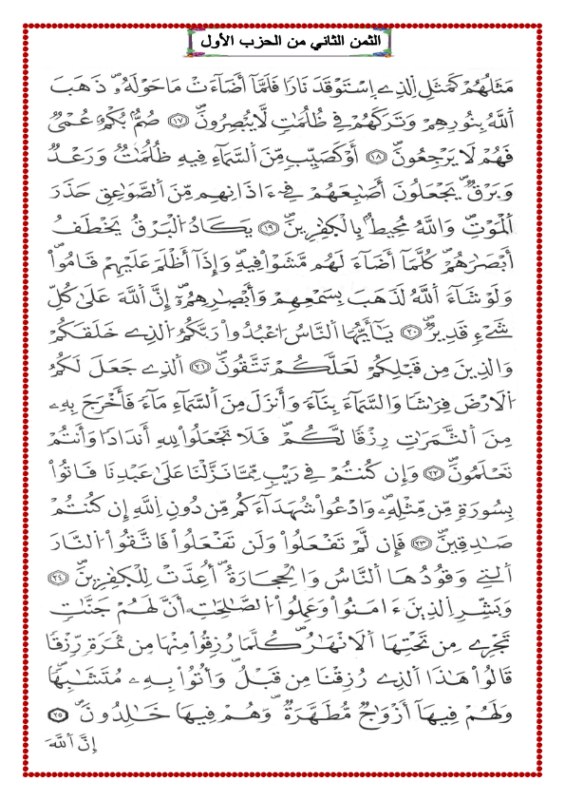 الثمن الثاني من الحزب الأول
مَثَلُهُمْ كَمَثَلِ اِلذِے اِسْتَوْقَدَ نَاراٗ فَلَمَّآ أَضَآءَتْ مَا حَوْلَهُۥ ذَهَبَ
اَللَّهُ بِنُورِهِمْ وَتَرَكَهُمْ فِے ظُلُمَٰتٖ لَّا يُبْصِرُونَۖ ١٧ صُمُّۢ بُكْمٌ عُمْيٞ
فَهُمْ لَا يَرْجِعُونَۖ ١٨ أَوْ كَصَيِّبٖ مِّنَ اَلسَّمَآءِ فِيهِ ظُلُمَٰتٞ وَرَعْدٞ
وَبَرْقٞۖ يَجْعَلُونَ أَصَٰبِعَهُمْ فِےٓ ءَاذَانِهِم مِّنَ اَلصَّوَٰعِقِ حَذَرَ
اَلْمَوْتِۖ وَاللَّهُ مُحِيطُۢ بِالْكٰ۪فِرِينَۖ ١٩ يَكَادُ اُلْبَرْقُ يَخْطَفُ
أَبْصَٰرَهُمْۖ كُلَّمَآ أَضَآءَ لَهُم مَّشَوْاْ فِيهِۖ وَإِذَآ أَظْلَمَ عَلَيْهِمْ قَامُواْۖ
وَلَوْ شَآءَ اَللَّهُ لَذَهَبَ بِسَمْعِهِمْ وَأَبْصٰ۪رِهِمُۥٓۖ إِنَّ اَللَّهَ عَلَىٰ كُلِّ
شَےْءٖ قَدِيرٞۖ ٢٠ يَٰٓأَيُّهَا اَلنَّاسُ اُعْبُدُواْ رَبَّكُمُ اُلذِے خَلَقَكُمْ
وَالذِينَ مِن قَبْلِكُمْ لَعَلَّكُمْ تَتَّقُونَۖ ٢١ اَلذِے جَعَلَ لَكُمُ
اُلَارْضَ فِرَٰشاٗ وَالسَّمَآءَ بِنَآءٗ وَأَنزَلَ مِنَ اَلسَّمَآءِ مَآءٗ فَأَخْرَجَ بِهِۦ
مِنَ اَلثَّمَرَٰتِ رِزْقاٗ لَّكُمْۖ فَلَا تَجْعَلُواْ لِلهِ أَندَاداٗ وَأَنتُمْ
تَعْلَمُونَۖ ٢٢ وَإِن كُنتُمْ فِے رَيْبٖ مِّمَّا نَزَّلْنَا عَلَىٰ عَبْدِنَا فَاتُواْ
بِسُورَةٖ مِّن مِّثْلِهِۦ وَادْعُواْ شُهَدَآءَكُم مِّن دُونِ اِللَّهِ إِن كُنتُمْ
صَٰدِقِينَۖ ٢٣ فَإِن لَّمْ تَفْعَلُواْ وَلَن تَفْعَلُواْ فَاتَّقُواْ اُلنَّارَ
اَلتِے وَقُودُهَا اَلنَّاسُ وَالْحِجَارَةُۖ أُعِدَّتْ لِلْكٰ۪فِرِينَۖ ٢٤
وَبَشِّرِ اِلذِينَ ءَامَنُواْ وَعَمِلُواْ اُلصَّٰلِحَٰتِ أَنَّ لَهُمْ جَنَّٰتٖ
تَجْرِے مِن تَحْتِهَا اَلَانْهَٰرُۖ كُلَّمَا رُزِقُواْ مِنْهَا مِن ثَمَرَةٖ رِّزْقاٗ
قَالُواْ هَٰذَا اَلذِے رُزِقْنَا مِن قَبْلُۖ وَأُتُواْ بِهِۦ مُتَشَٰبِهاٗۖ
وَلَهُمْ فِيهَآ أَزْوَٰجٞ مُّطَهَّرَةٞۖ وَهُمْ فِيهَا خَٰلِدُونَۖ ٢٥
إِنَّ اَللَّهَ